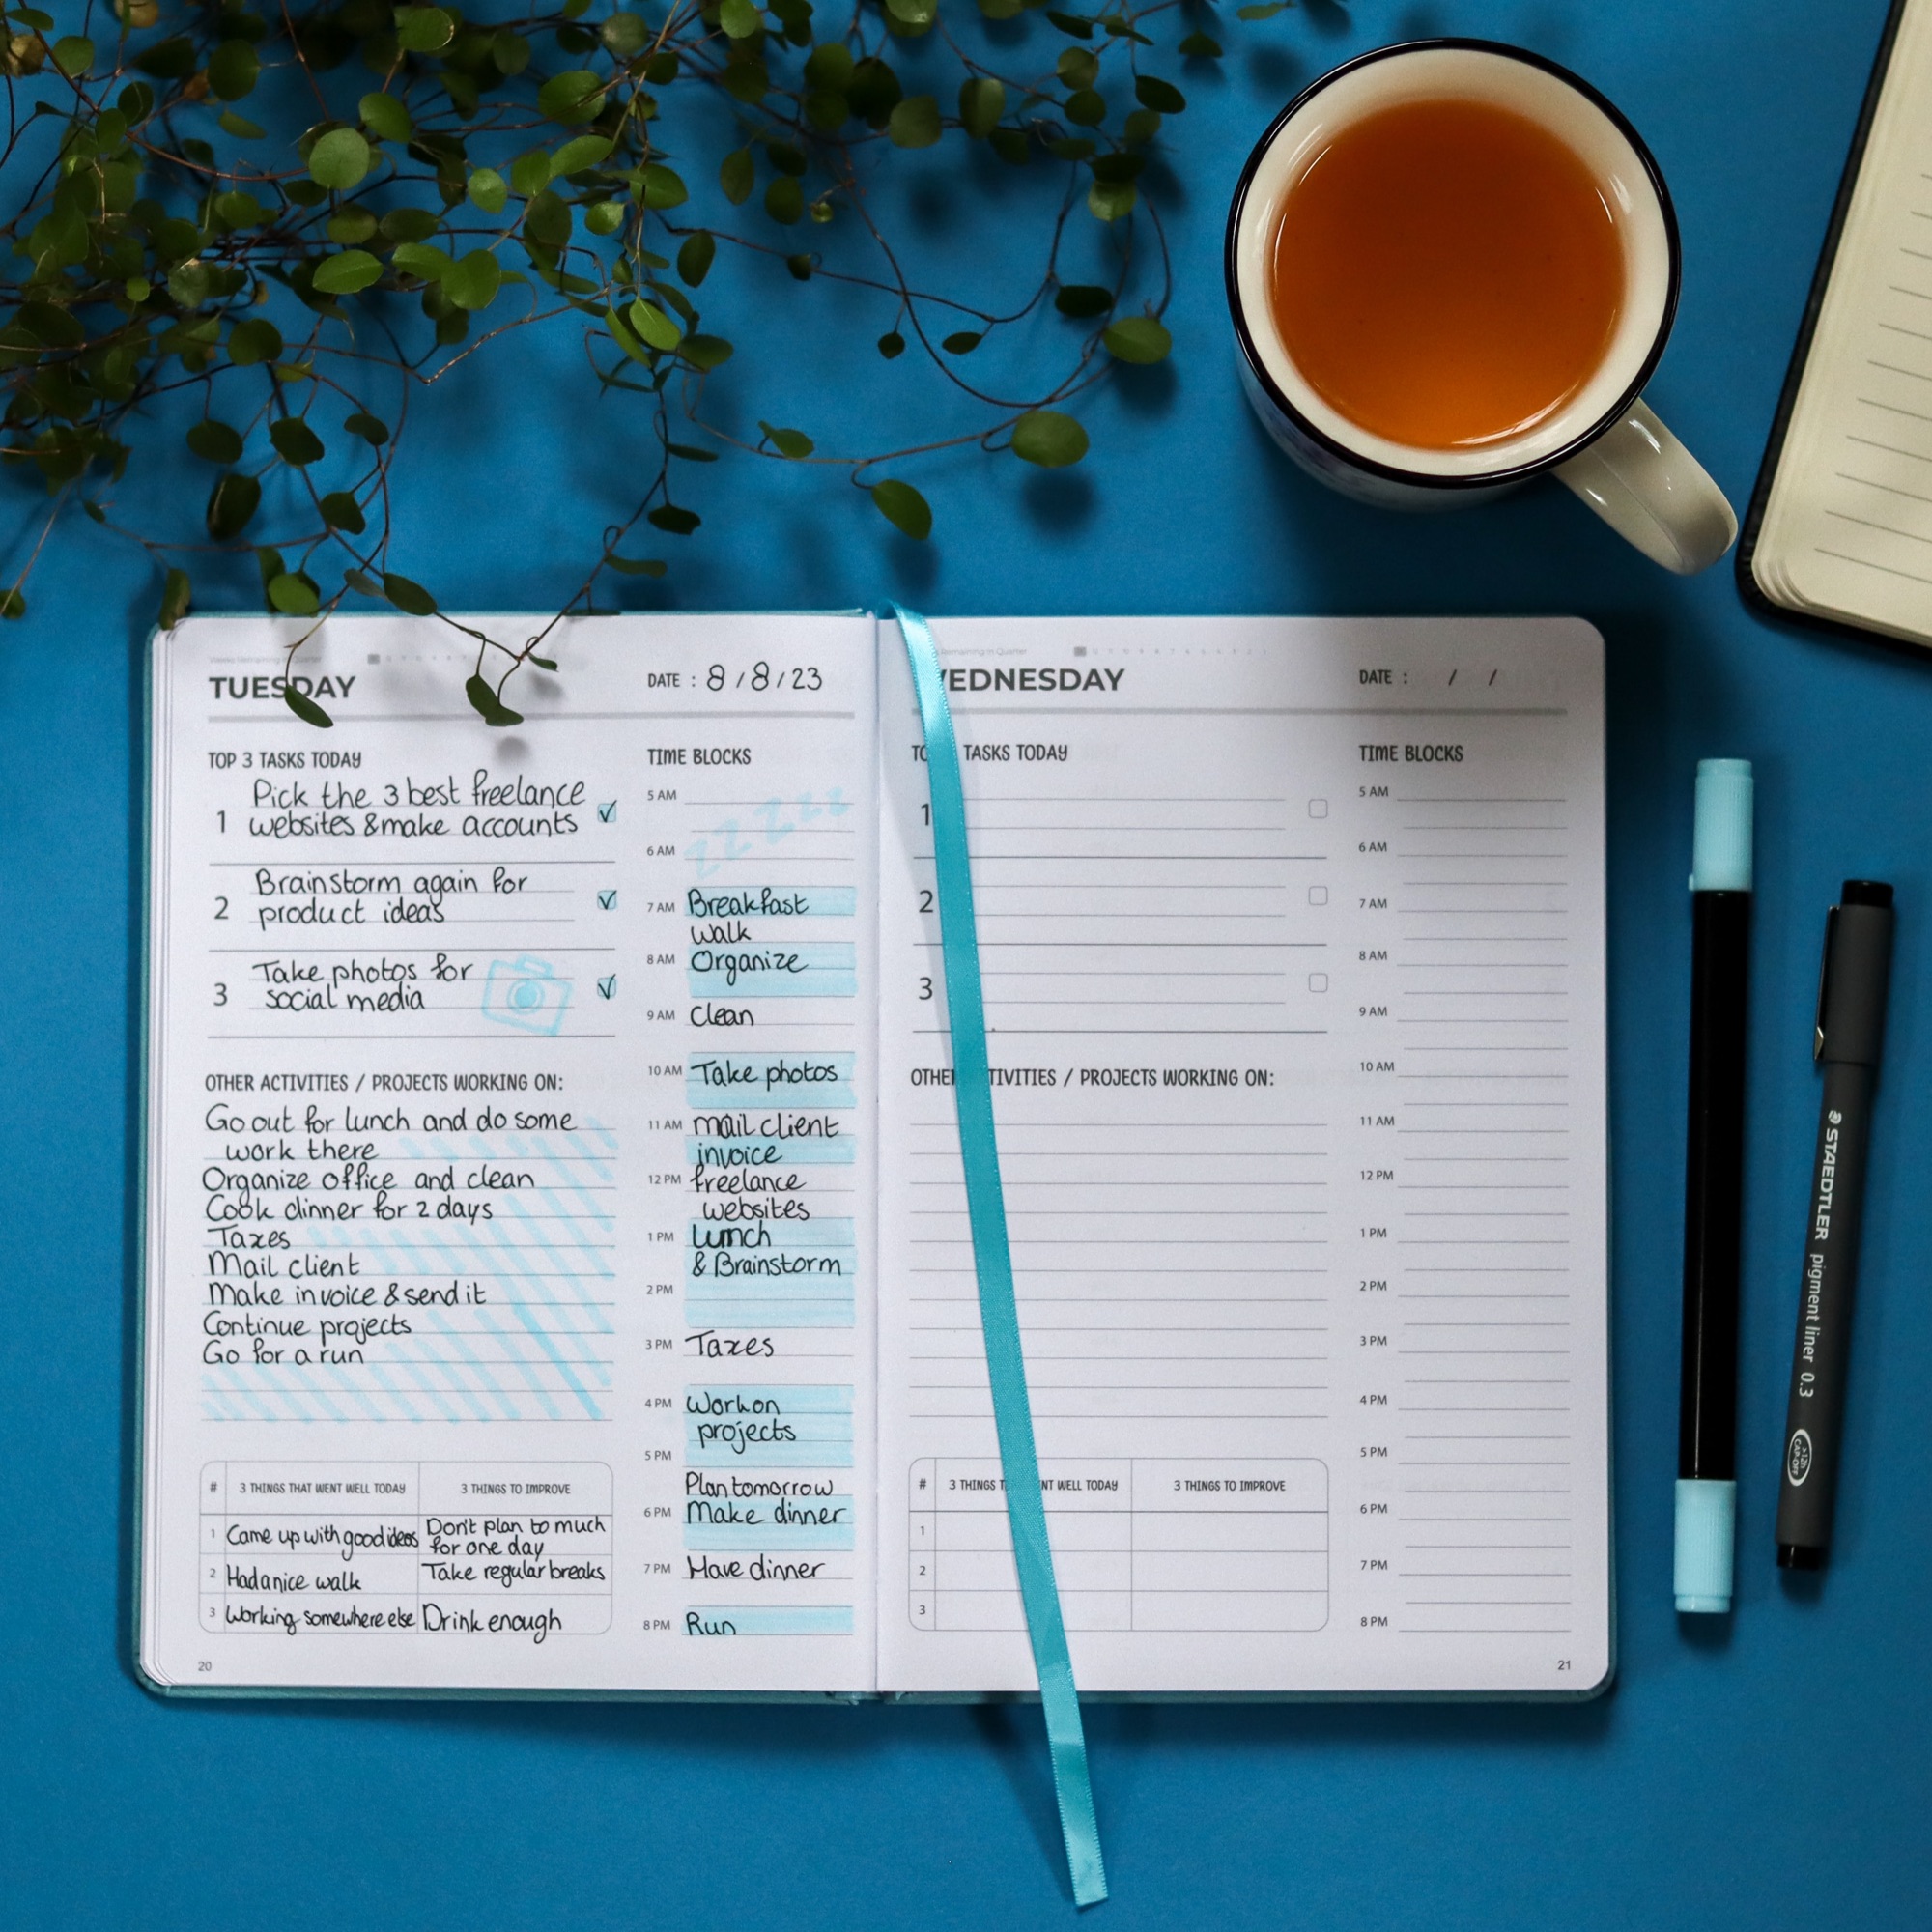 Weeks Remaining in Quarter
TUESDAY
DATE : 8 / 8 / 23
TOP 3 TASKS TODAY
1 Pick the 3 best freelance
websites & make accounts
2 Brainstorm again for
product ideas
3 Take photos for
social media
OTHER ACTIVITIES / PROJECTS WORKING ON:
Go out for lunch and do some
work there
Organize office and clean
Cook dinner for 2 days
Taxes
Mail client
Make invoice & send it
Continue projects
Go for a run
# 3 THINGS THAT WENT WELL TODAY 3 THINGS TO IMPROVE
1 Came up with good ideas Don't plan to much
for one day
2 Had a nice walk Take regular breaks
3 Working somewhere else Drink enough
20
TIME BLOCKS
5 AM
zzzzz
6 AM
7 AM Breakfast
walk
8 AM Organize
9 AM Clean
10 AM Take photos
11 AM mail client
invoice
12 PM freelance
websites
1 PM Lunch
& Brainstorm
2 PM
3 PM Taxes
4 PM Work on
projects
5 PM
Plan tomorrow
6 PM Make dinner
7 PM Have dinner
8 PM Run
Remaining in Quarter
WEDNESDAY
DATE : / /
TO TASKS TODAY
1
2
3
OTHE TIVITIES / PROJECTS WORKING ON:
# 3 THINGS T NT WELL TODAY 3 THINGS TO IMPROVE
1
2
3
TIME BLOCKS
5 AM
6 AM
7 AM
8 AM
9 AM
10 AM
11 AM
12 PM
1 PM
2 PM
3 PM
4 PM
5 PM
6 PM
7 PM
8 PM
21
STAEDTLER pigment liner 0.3
CAP-OFF